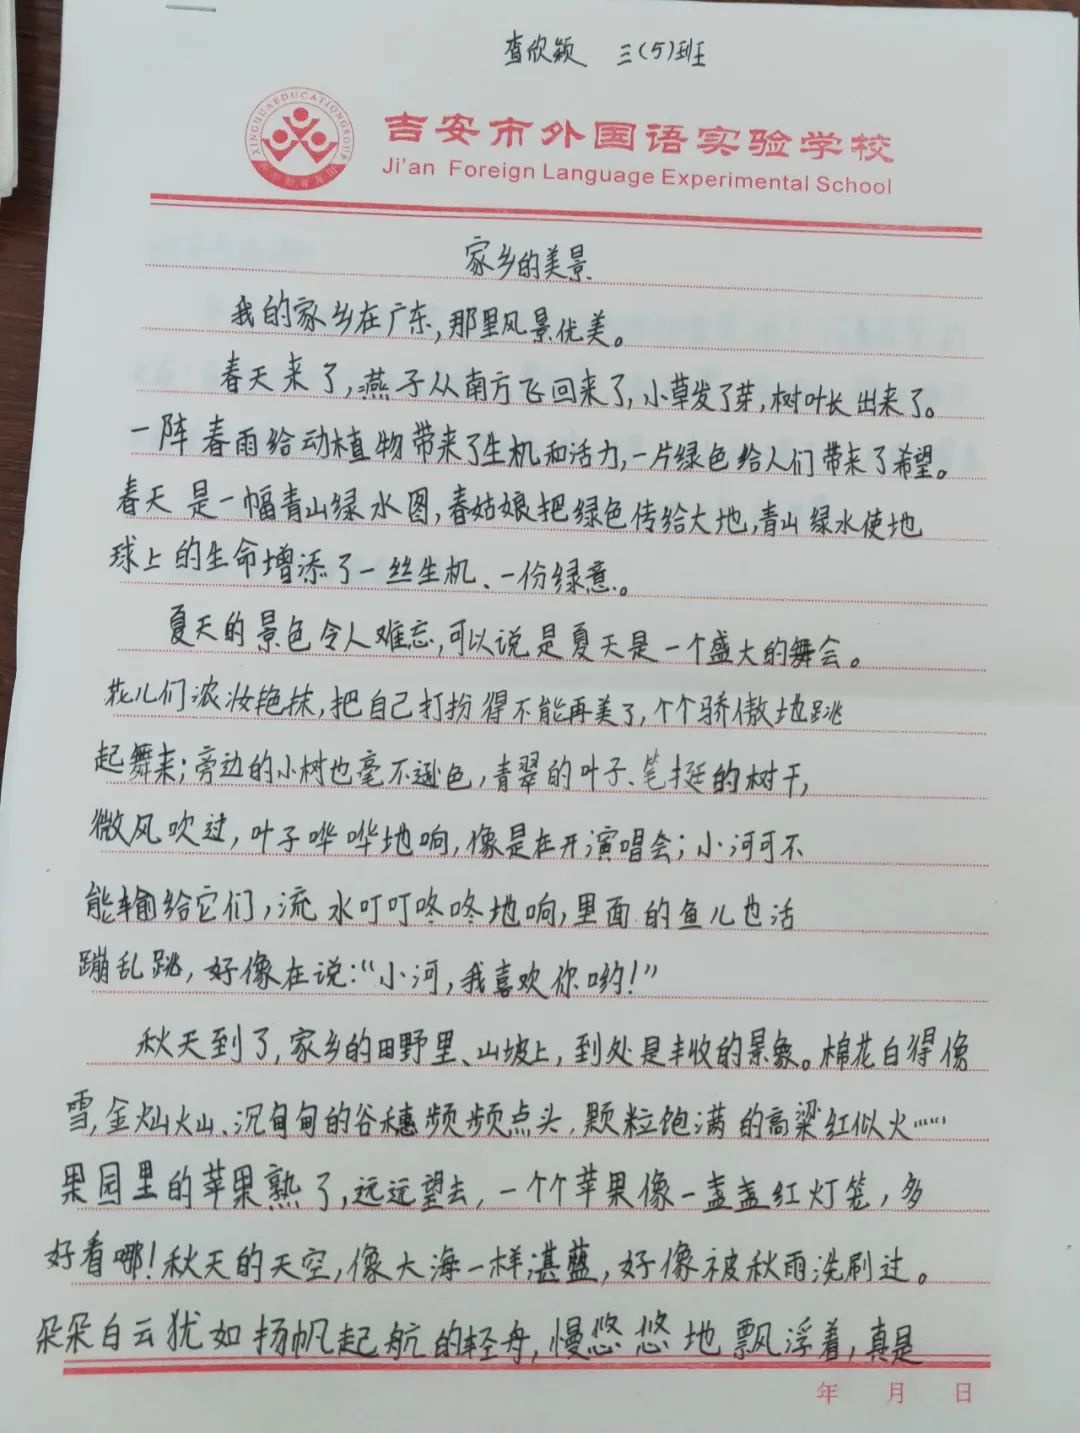 查欣颖 三(5)班
XINGHUAEDUCATIONGROUP
吉安市外国语实验学校
Ji'an Foreign Language Experimental School
家乡的美景
我的家乡在广东,那里风景优美。
春天来了,燕子从南方飞回来了,小草发了芽,树叶长出来了。
一阵春雨给动植物带来了生机和活力,一片绿色给人们带来了希望。
春天是一幅青山绿水图,春姑娘把绿色传给大地,青山绿水使地
球上的生命增添了一丝生机、一份绿意。
夏天的景色令人难忘,可以说是夏天是一个盛大的舞会。
花儿们浓妆艳抹,把自己打扮得不能再美了,个个骄傲地跳
起舞来;旁边的小树也毫不逊色,青翠的叶子、笔挺的树干,
微风吹过,叶子哗哗地响,像是在开演唱会;小河可不
能输给它们,流水叮叮咚咚地响,里面的鱼儿也活
蹦乱跳,好像在说:“小河,我喜欢你哟!”
秋天到了,家乡的田野里、山坡上,到处是丰收的景象。棉花白得像
雪,金灿灿、沉甸甸的谷穗频频点头,颗粒饱满的高粱红似火……
果园里的苹果熟了,远远望去,一个个苹果像一盏盏红灯笼,多
好看哪!秋天的天空,像大海一样湛蓝,好像被秋雨洗刷过。
朵朵白云犹如扬帆起航的轻舟,慢悠悠地飘浮着,真是
年 月 日